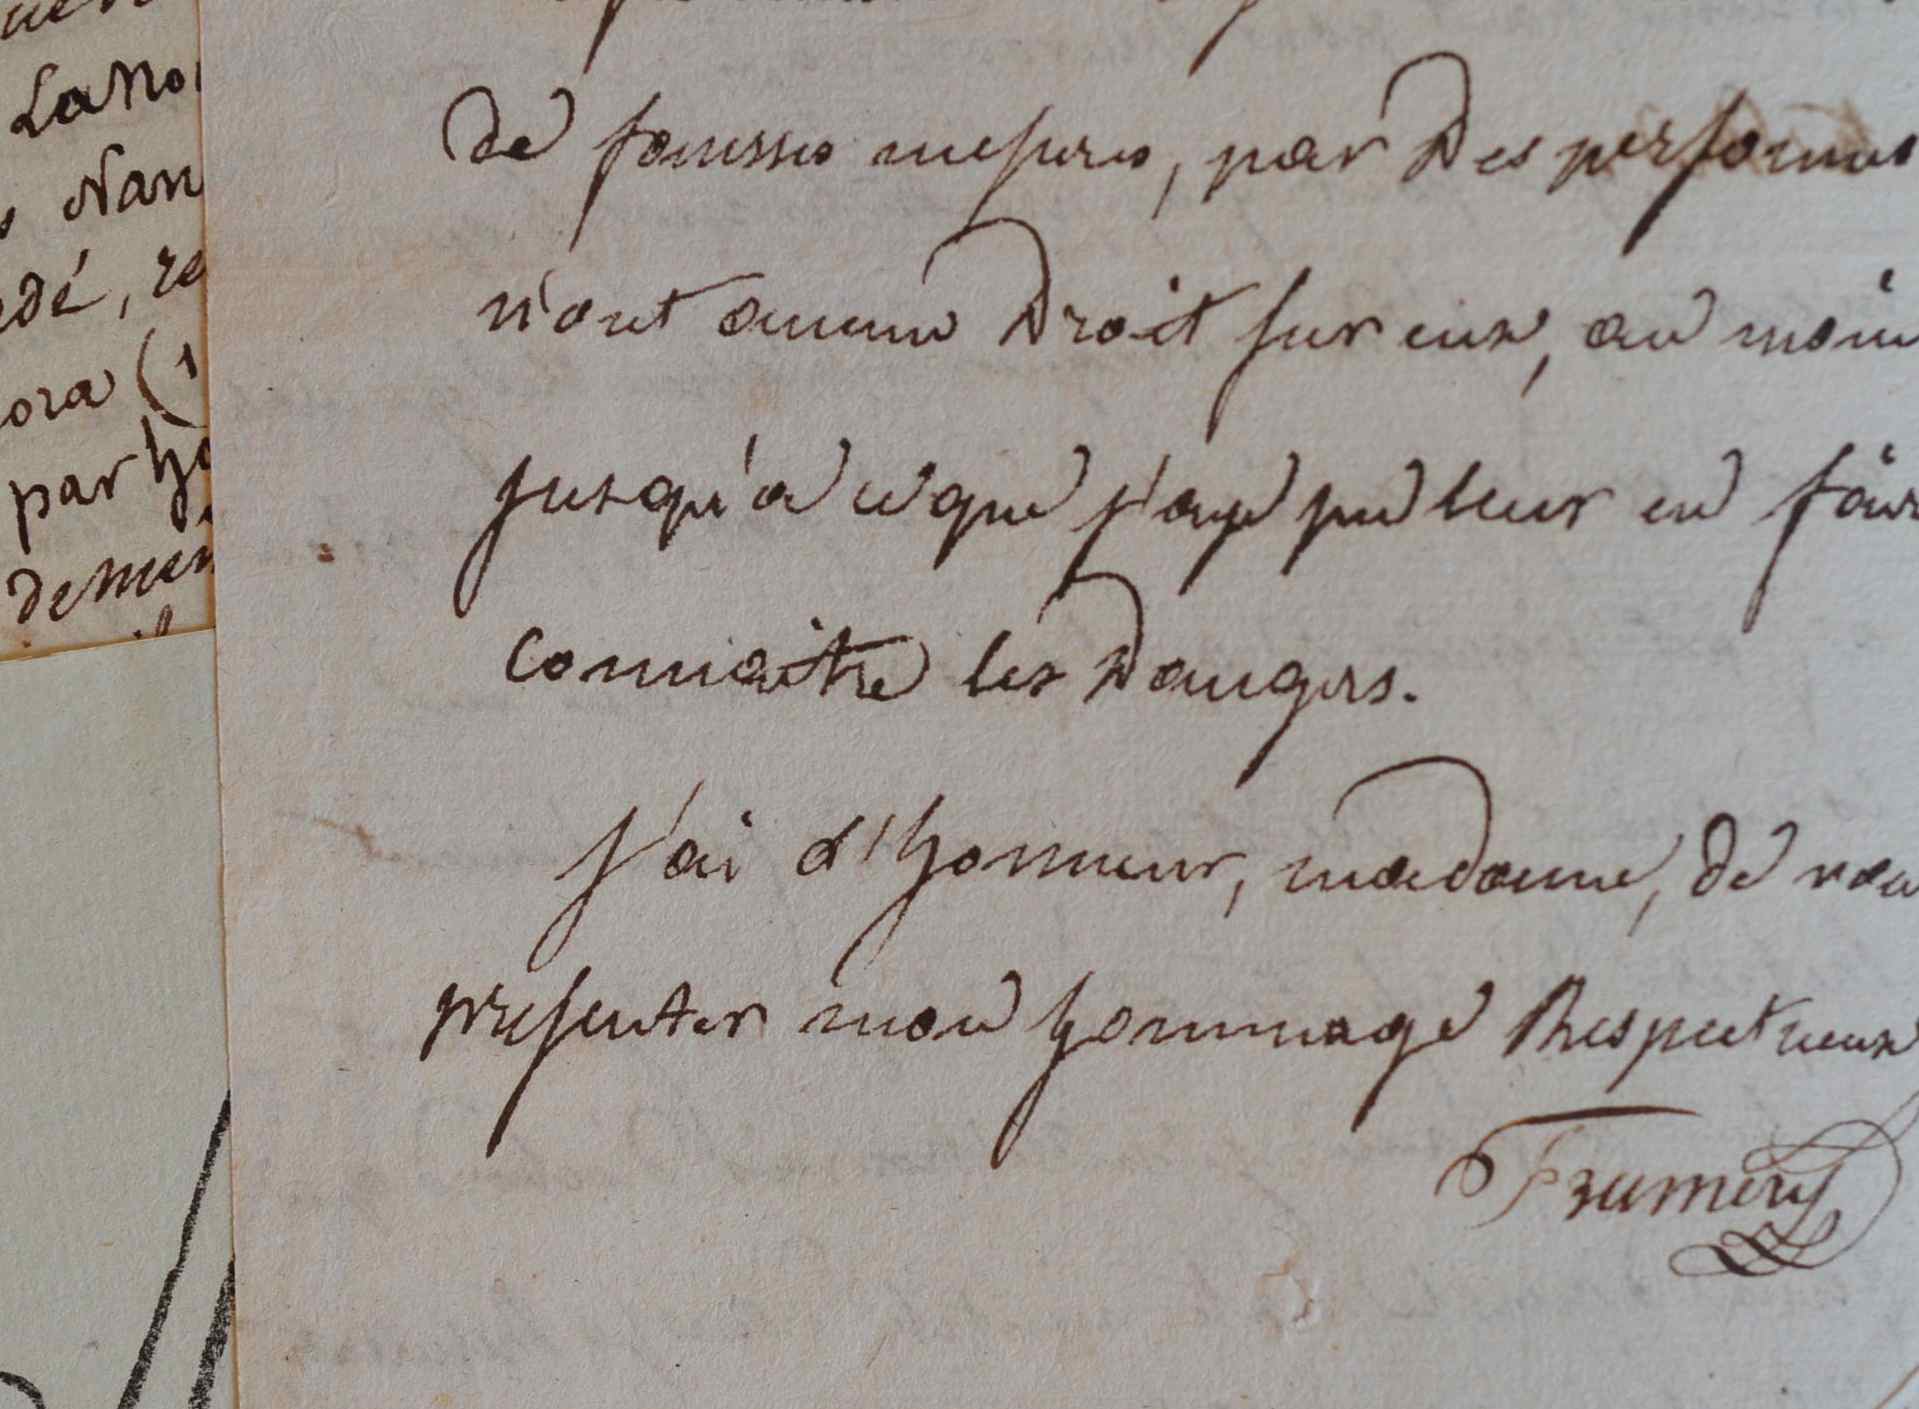 Lano
Nan
dé, re
ora (1
par ho
demen
de fausses mesures, par Des personnes
n'ont aucun Droit sur eux, au moin
jusqu'a ce que j'aye pu leur en fair
connaitre les Dangers.
J'ai l'honneur, madame, de vou
presenter mon hommage Respectueux
Frumery